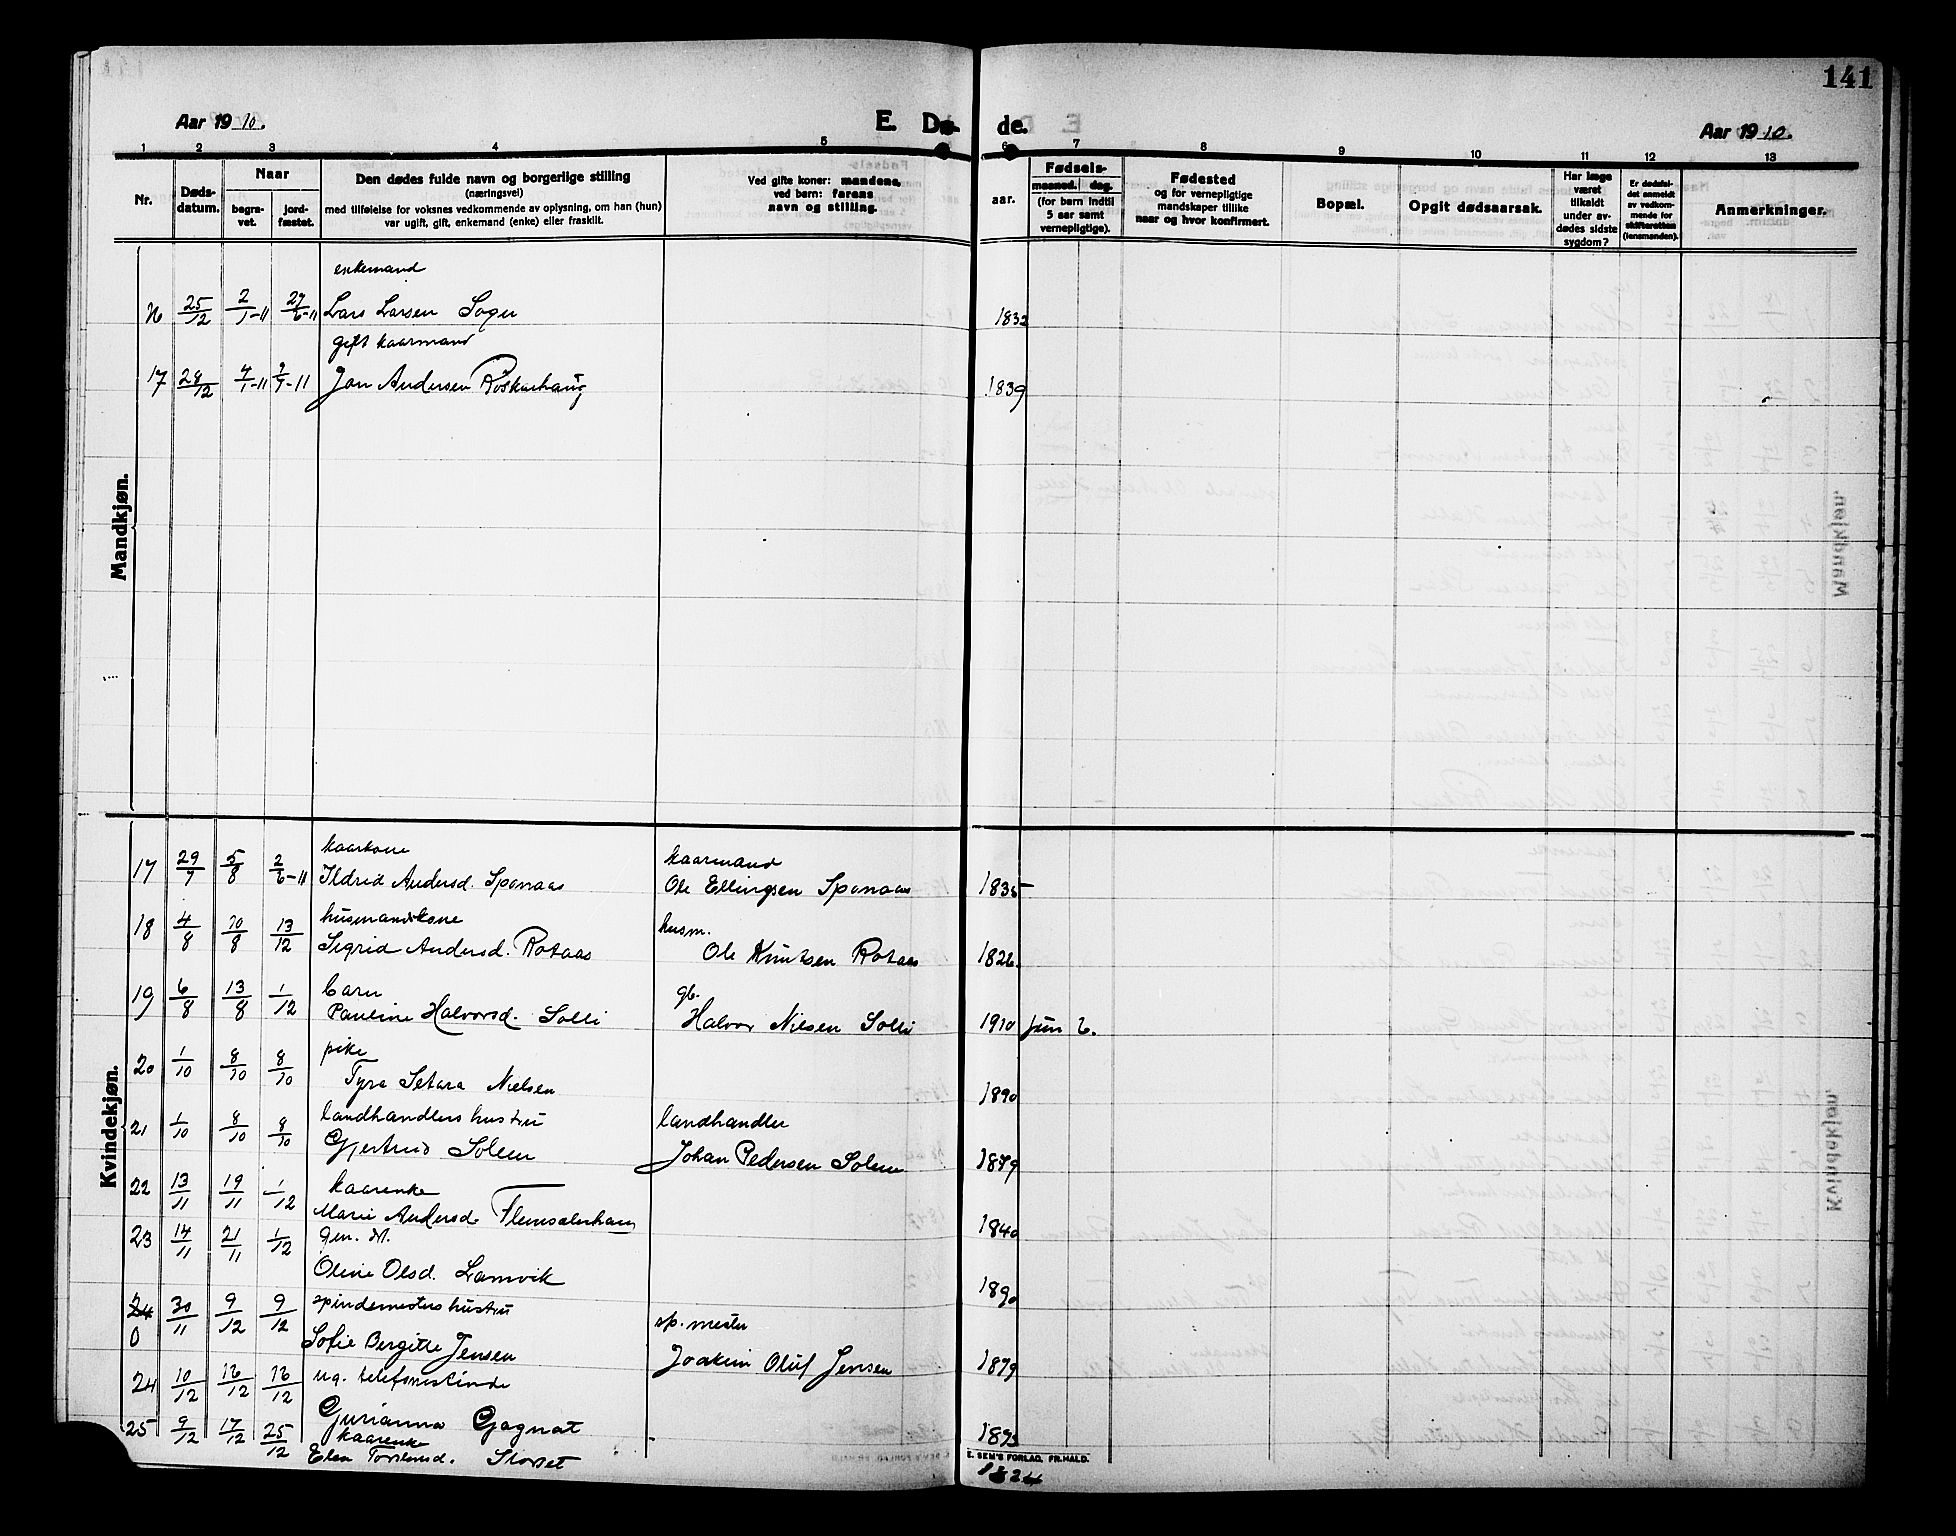 141
Aar 1910.
E. Dø-
de.
Aar 1910.
1 2 3 4 5 6 7 8 9 10 11 12 13
Nr.
Døds-
datum.
Naar
begra-
vet.
jord-
fæstet.
Den dødes fulde navn og borgerlige stilling
(næringsvei)
med tilføielse for voksnes vedkommende av oplysning, om han (hun)
var ugift, gift, enkemand (enke) eller fraskilt.
Ved gifte koner: mandens,
ved børn: farens
navn og stilling.
aar.
Fødsels-
maaned. dag.
(for barn indtil
5 aar samt
vernepligtige).
Fødested
og for vernepligtige
mandskaper tillike
naar og hvor konfirmert.
Bopæl.
Opgit dødsaarsak.
Har læge
været
tilkaldt
under av-
dødes sidste
sygdom?
Er dødsfal-
det anmeldt
av vedkom-
mende for
skifteretten
(lensmanden).
Anmerkninger.
Mandkjøn.
enkemand
16 25/12 2/1-11 27/6-11 Lars Larsen Sogn 1832
gift kaarmand
17 28/12 4/1-11 Jon Andersen Roskarhaug 1839
Kvindekjøn.
kaarkone kaarmand
17 29/7 5/8 2/6-11 Ildrid Andersd. Sponaas Ole Ellingsen Sponaas 1835
husmandskone husm.
18 4/8 10/8 13/12 Sigrid Andersd. Rotaas Ole Knutsen Rotaas 1826.
barn gb.
19 6/8 13/8 1/12 Pauline Halvorsd. Solli Halvor Nilsen Solli 1910 juni 6.
pike
20 1/10 8/10 8/10 Tyra Setara Nielsen 1890
landhandlers hustru landhandler
21 1/10 8/10 8/10 Gjertrud Solem Johan Pedersen Solem 1879
kaarenke
22 13/11 19/11 1/12 Marie Andersd. 1840
gm. dt.
23 14/11 21/11 1/12 Oline Olsd. Lamvik 1890
spindemesters hustru sp. mester
20 30/11 9/12 9/12 Sofie Bergitte Jensen Joakim Oluf Jensen 1879
ug. telefonistinde
24 10/12 16/12 16/12 Gurianna Gagnat 1893
kaarenke
25 9/12 17/12 25/12 Elen Torstensd. Storset 1824
E. SEM'S FORLAG, FR.HALD.